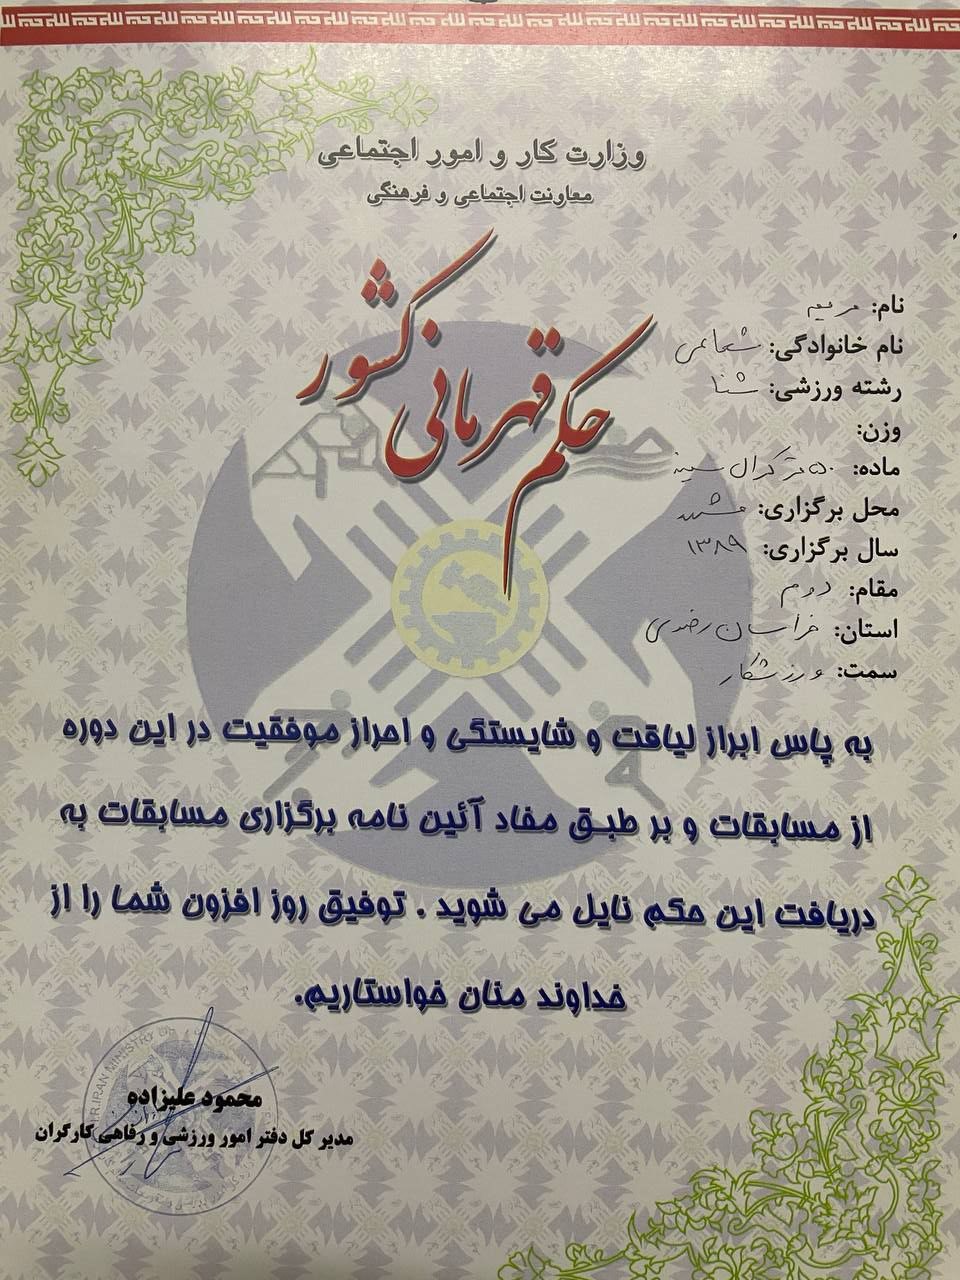 وزارت کار و امور اجتماعی
معاونت اجتماعی و فرهنگی
حکم قهرمانی کشور
نام: مریم
نام خانوادگی: شجاعی
رشته ورزشی: شنا
وزن:
ماده: ۵۰ متر کرال سینه
محل برگزاری: مشهد
سال برگزاری: ۱۳۸۹
مقام: دوم
استان: خراسان رضوی
سمت: ورزشکار
به پاس ابراز لیاقت و شایستگی و احراز موفقیت در این دوره
از مسابقات و بر طبق مفاد آئین نامه برگزاری مسابقات به
دریافت این حکم نایل می شوید . توفیق روز افزون شما را از
خداوند منان خواستاریم.
محمود علیزاده
مدیر کل دفتر امور ورزشی و رفاهی کارگران